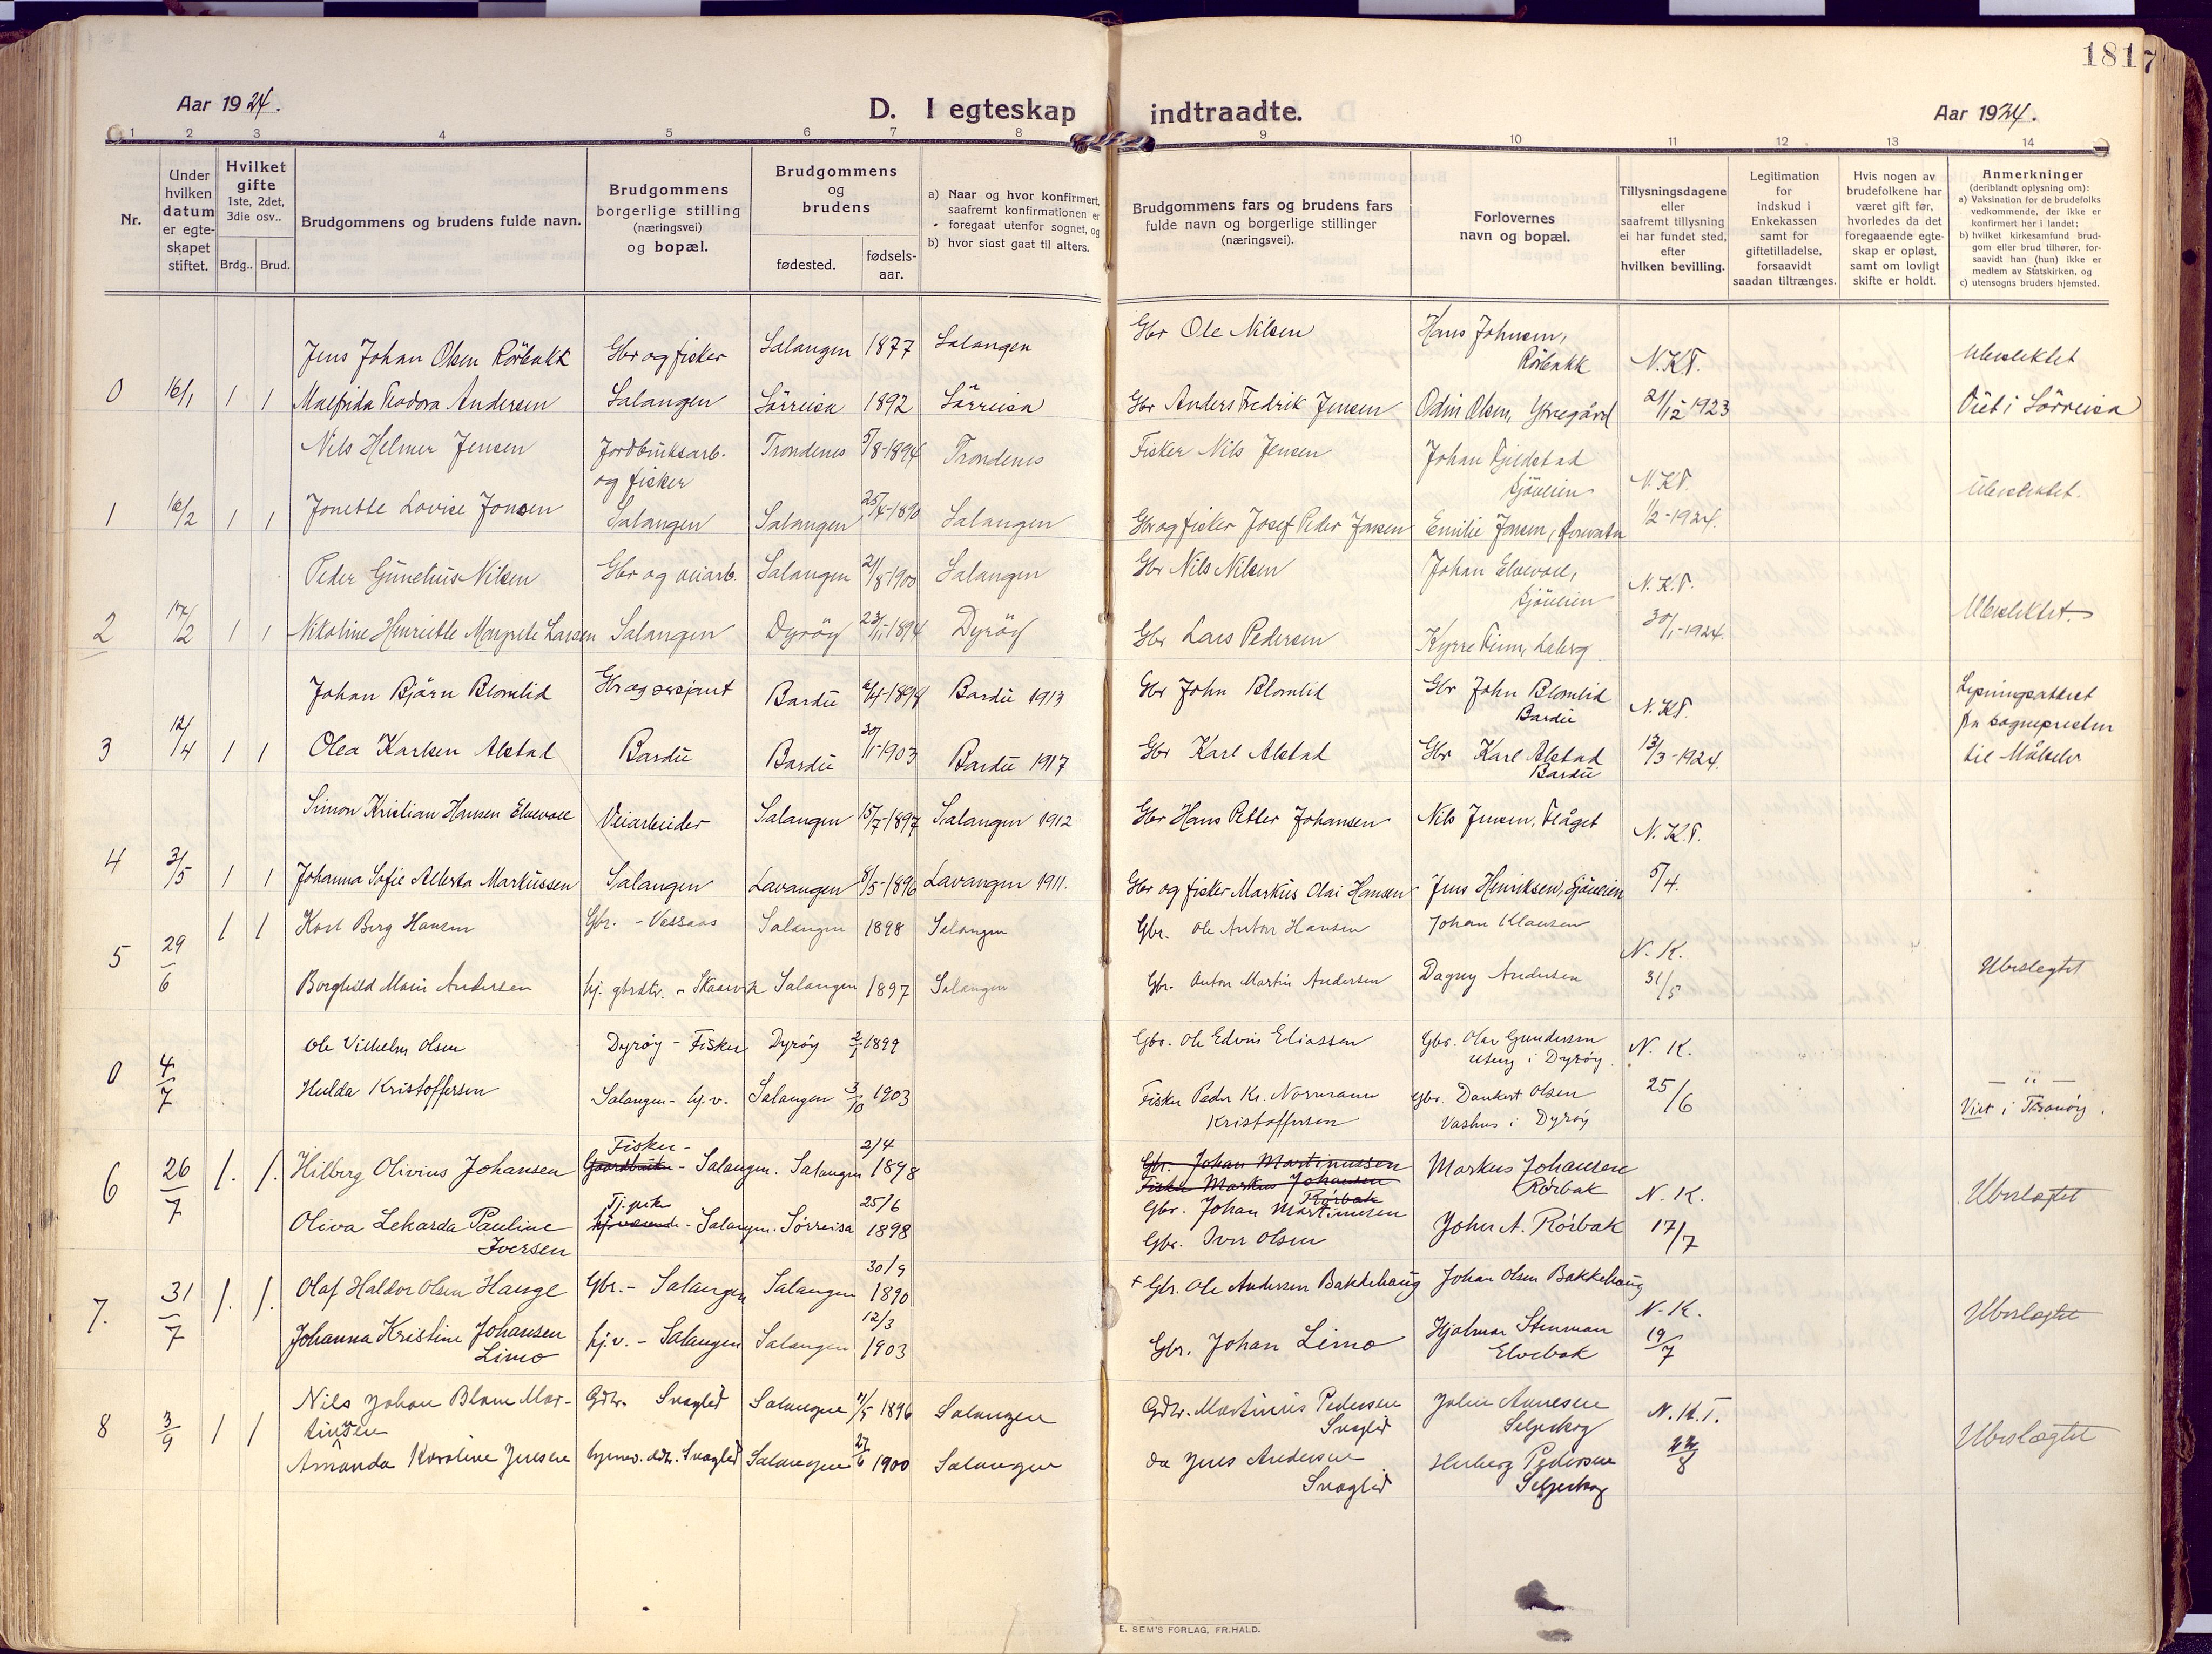 181 7
Aar 1924.
D. I egteskap indtraadte.
Aar 1924.
1 2 3 4 5 6 7 8 9 10 11 12 13 14
Nr.
Under hvilken datum er egteskapet stiftet.
Hvilket gifte 1ste, 2det, 3die osv..
Brdg.. Brud.
Brudgommens og brudens fulde navn.
Brudgommens borgerlige stilling (næringsvei) og bopæl.
Brudgommens og brudens
fødested. fødsels-aar.
a) Naar og hvor konfirmert, saafremt konfirmationen er foregaat utenfor sognet, og
b) hvor sidst gaat til alters.
Brudgommens fars og brudens fars fulde navn og borgerlige stillinger (næringsvei).
Forlovernes navn og bopæl.
Tillysningsdagene eller saafremt tillysning ei har fundet sted, efter hvilken bevilling.
Legitimation for indskud i Enkekassen samt for giftetilladelse, forsaavidt saadan tiltrænges.
Hvis nogen av brudefolkene har været gift før, hvorledes da det foregaaende egteskap er opløst, samt om lovligt skifte er holdt.
Anmerkninger (deriblandt oplysning om):
a) Vaksination for de brudefolks vedkommende, der ikke er konfirmert her i landet;
b) hvilket kirkesamfund brudgom eller brud tilhører, forsaavidt han (hun) ikke er medlem av Statskirken, og
c) utensogns bruders hjemsted.
Jens Johan Olsen Rörbakk Gbr og fisker Salangen 1877 Salangen Gbr Ole Nilsen Hans Johnsen, Rörbakk N.K.T. Ubeslektet
0 16/1 1 1 Malfrida Teodora Andersen Salangen Sörreisa 1892 Sörreisa Gbr Anders Fredrik Jensen Odin Olsen, 21/12 1923 Viet i Sörreisa
Nils Helmer Jensen Jordbruksarb. og fisker Trondenes 5/8-1894 Trondenes Fisker Nils Jensen Johan Sjöveien N.K.T. Ubeslektet.
1 16/2 1 1 Jonette Lovise Jonsen Salangen Salangen Salangen Gbr og fisker Josef Peder Jonsen Emilie Jonsen, 1/2-1924.
Peder Nilsen Gbr og veiarb. Salangen 21/8-1900 Salangen Gbr Nils Nilsen Johan Elvevoll, Sjöveien N.K.T.
2 17/2 1 1 Nikoline Henriette Margrete Larsen Salangen Dyröy 23/11-1894 Dyröy Gbr Lars Pedersen 30/1-1924. Ubeslektet.
Johan Björn Blomlid Gbr og sersjant Bardu 6/4-1894 Bardu 1913 Gbr John Blomlid Gbr John Blomlid Bardu N.K.T. Lysningsattest fra sognepresten
3 12/4 1 1 Olea Karlsen Alstad Bardu Bardu 30/11-1903 Bardu 1917 Gbr Karl Alstad Gbr Karl Alstad Bardu 13/3-1924. til Målselv
Simon Kristian Hansen Elvevoll Veiarbeider Salangen 15/7-1897 Salangen 1912 Gbr Hans Petter Johansen Nils Jensen, Flåget N.K.T.
4 3/5 1 1 Johanna Sofie Alberta Markussen Salangen Lavangen 8/5-1896 Lavangen 1911. Gbr og fisker Markus Olai Hansen Jens Henriksen, Sjöveien 5/4.
1 1 Karl Berg Hansen Gbr. - Vassaas Salangen 1898 Salangen Gbr. Ole Anton Hansen Johan Klausen
5 29/6 N.K. Ubeslegtet
Borghild Marie Andersen hj. gbrdtr. - Salangen 1897 Salangen Gbr. Anton Martin Andersen Dagny Andersen 31/5
Ole Vilhelm Olsen Dyröy - Fisker Dyröy 2/1 1899 Gbr. Ole Edvin Eliassen Gbr. Olav Gundersen i Dyröy. N. K.
0 4/7 Hulda Kristoffersen Salangen - hj.v. Salangen 3/10 1903 Fisker Peder Kr. Normann Kristoffersen Gbr. Dankert Olsen Vashus i Dyröy 25/6 — „ — Viet i Tranöy.
6 26/7 1. 1. Hilberg Olivius Johansen Fisker - Gaardbruker - Salangen. Salangen 2/4 1898 Gbr. Johan Martinussen Fisker Markus Johansen Rörbak Gbr. Johan Martinusen Markus Johansen Rörbak N. K. Ubeslægtet
Oliva Lekarda Pauline Iversen Tj.pike - Salangen. Sörreisa 25/6 1898 Gbr. Iver Olsen Johan A. Rörbak 17/7
7. 31/7 1. 1. Olaf Haldor Olsen Hauge Gbr. - Salangen Salangen 30/9 1890 + Gbr. Ole Andersen Bakkehaug Johan Olsen Bakkehaug N.K. Ubeslægtet
Johanna Kristine Johansen Limo hj.v. - Salangen Salangen 12/3 1903 Gbr. Johan Limo Hjalmar Stenman Elvebak 19/7
8 3/9 1 1 Nils Johan Blom Martinsen Gdbr. Svaglid Salangen 11/5 1896 Salangen Gdbr. Martinius Pedersen Svaglid Johan Seljeskog N.K.T. Ubeslægtet
Amanda Karoline Jensen hjemv. dtr. Svaglid Salangen 27/6 1900 Salangen do Jens Andersen Svaglid Herberg Pedersen Seljeskog 22/8
E. SEM'S FORLAG, FR.HALD.